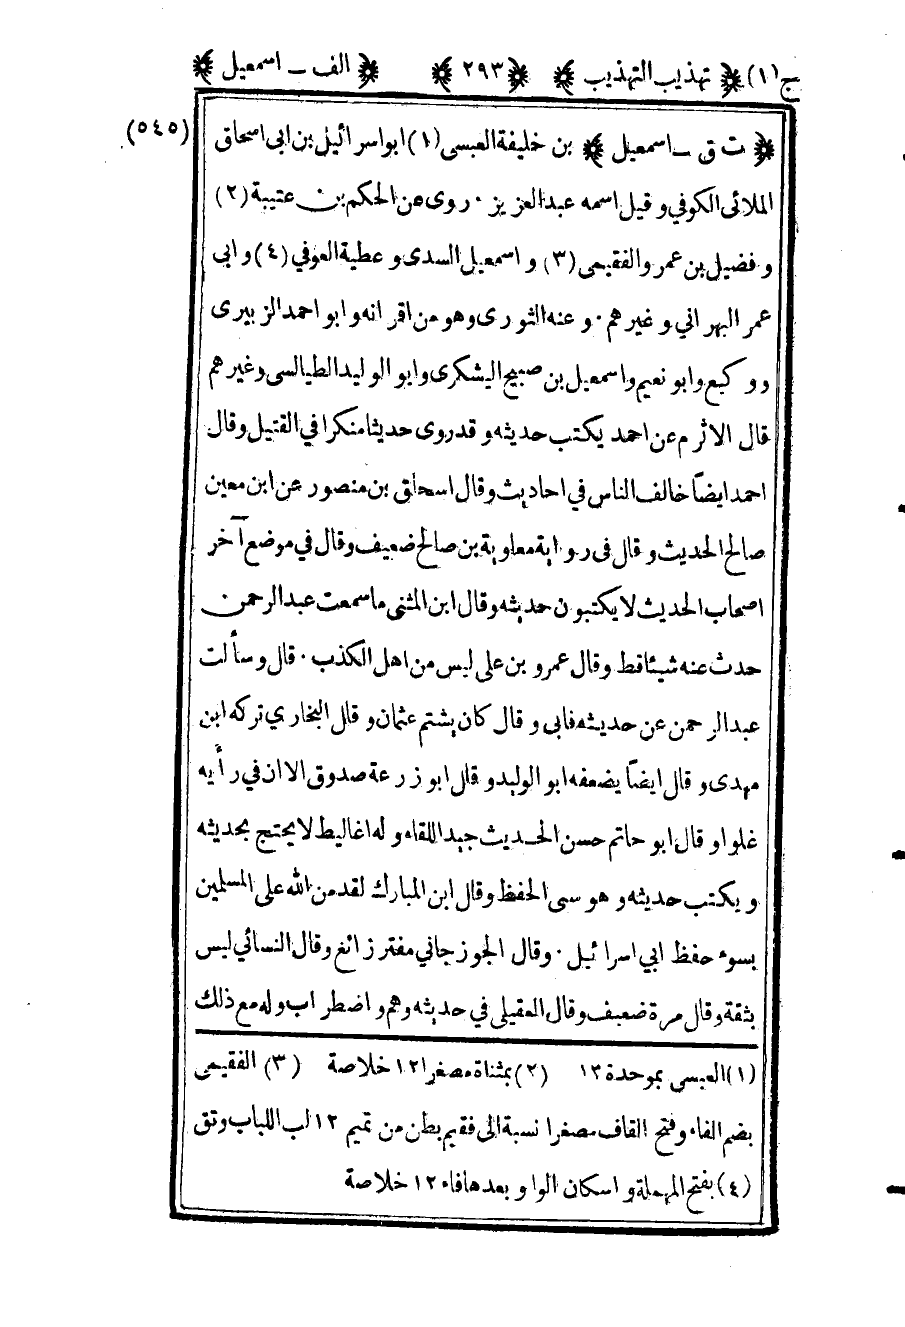 ج(١) ﴿ تهذيب التهذيب ﴾ ﴿ ٢٩٣ ﴾ ﴿ الف ـ اسمعيل ﴾
(٥٤٥)
﴿ ت ق ـ اسمعيل ﴾ بن خليفة العبسى (١) ابو اسرائيل بن ابى اسحاق
الملائى الكوفي وقيل اسمه عبد العزيز · روى عن الحكم بن عتيبة (٢)
و فضيل بن عمرو الفقيمى (٣) و اسمعيل السدى و عطية العوفي (٤) و ابى
عمر البهراني و غيرهم · و عنه الثورى وهو من اقرانه و ابو احمد الزبيرى
و وكيع وابو نعيم واسمعيل بن صبيح اليشكرى وابو الوليد الطيالسى وغيرهم
قال الاثرم عن احمد يكتب حديثه وقد روى حديثا منكرا في القتيل وقال
احمد ايضاً خالف الناس في احاديث وقال اسحاق بن منصور عن ابن معين
صالح الحديث وقال فى رواية معاوية بن صالح ضعيف وقال في موضع آخر
اصحاب الحديث لا يكتبون حديثه وقال ابن المثنى ما سمعت عبد الرحمن
حدث عنه شيئا قط وقال عمرو بن على ليس من اهل الكذب · قال وسألت
عبد الرحمن عن حديثه فابى وقال كان يشتم عثمان وقال البخاري تركه ابن
مهدى وقال ايضاً يضعفه ابو الوليد وقال ابو زرعة صدوق الا ان في رأيه
غلوا وقال ابو حاتم حسن الحديث جيد اللقاء وله اغاليط لا يحتج بحديثه
ويكتب حديثه وهو سيى الحفظ وقال ابن المبارك لقد من الله على المسلمين
بسوء حفظ ابي اسرائيل · وقال الجوزجاني مفتر زائغ وقال النسائي ليس
بثقة وقال مرة ضعيف وقال العقيلي في حديثه وهم واضطراب وله مع ذلك
(١) العبسى بموحدة ١٢ (٢) بمثناة مصغرا ١٢ خلاصة (٣) الفقيمى
بضم الفاء وفتح القاف مصغرا نسبة الى فقيم بطن من تميم ١٢ لب اللباب وتق
(٤) بفتح المهملة واسكان الواو بعدها فاء ١٢ خلاصة